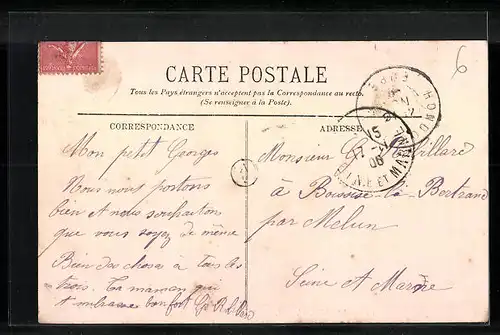 6
CARTE POSTALE
Tous les Pays étrangers n'acceptent pas la Correspondance au recto.
(Se renseigner à la Poste).
CORRESPONDANCE
Mon petit Georges
Nous nous portons
bien et nous souhaitons
que vous soyez de même
Bien des choses à tous les
trois. Ta maman qui
t'embrasse bien fort
ADRESSE
Monsieur G. Villard
à Boissise-la-Bertrand
par Melun
Seine et Marne
15
06
ET MARNE